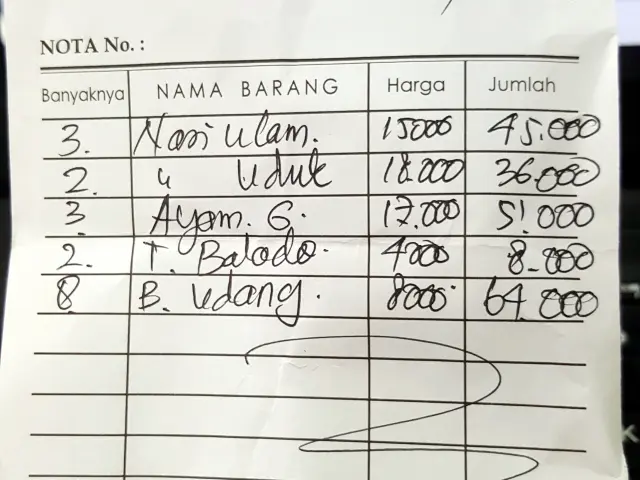 NOTA No. :
Banyaknya NAMA BARANG Harga Jumlah
3. Nasi Ulam. 15000 45.000
2. " Uduk 18.000 36.000
3. Ayam. G. 17.000 51.000
2. T. Balado. 4000 8.000
8. B. Udang. 8000 64.000